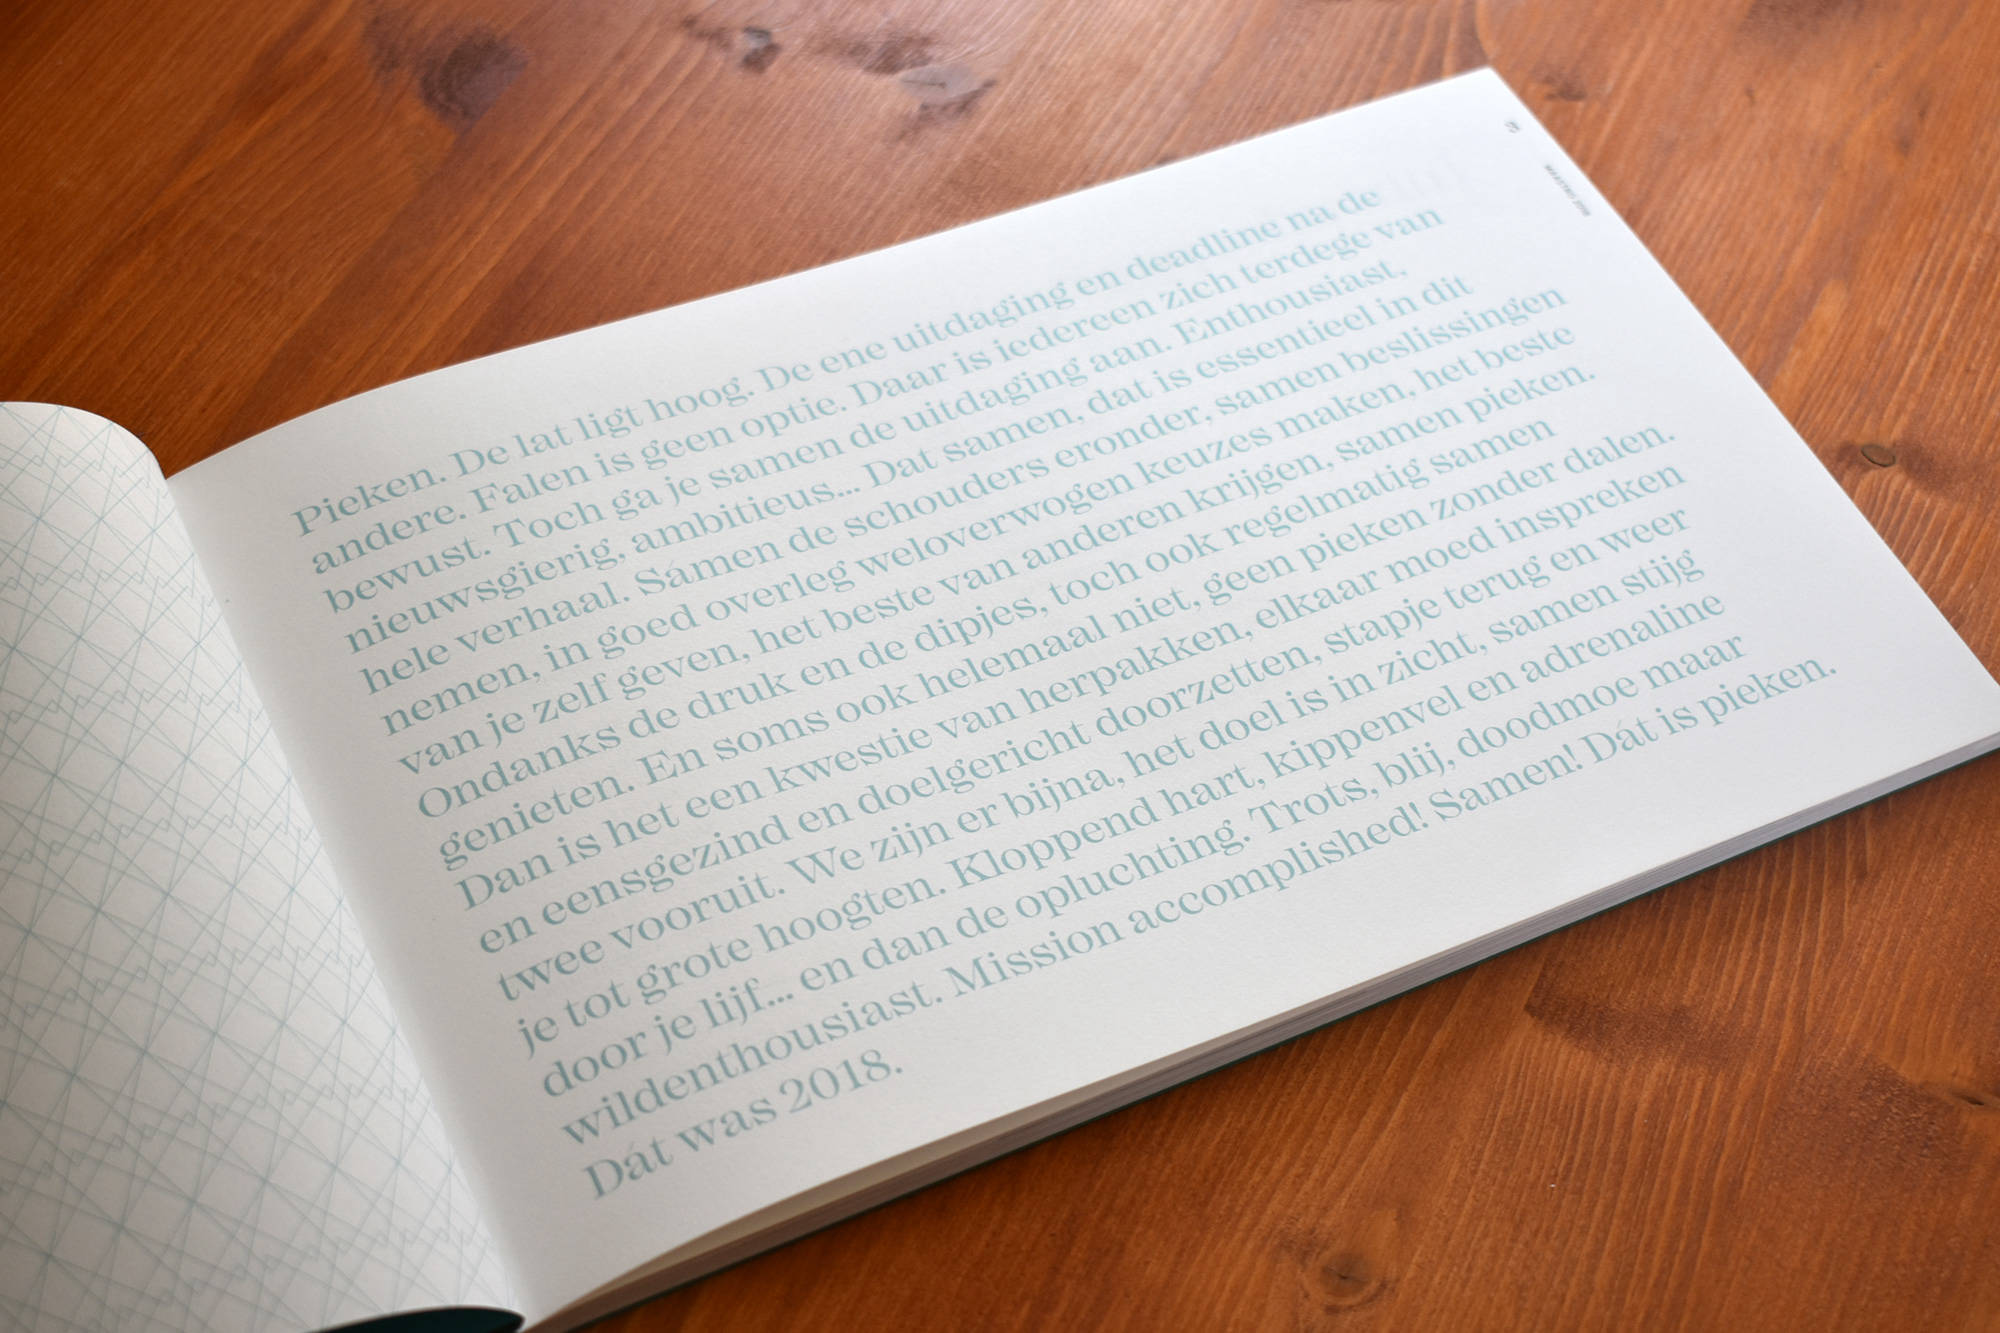 Pieken. De lat ligt hoog. De ene uitdaging en deadline na de
andere. Falen is geen optie. Daar is iedereen zich terdege van
bewust. Toch ga je samen de uitdaging aan. Enthousiast,
nieuwsgierig, ambitieus... Dat samen, dat is essentieel in dit
hele verhaal. Sámen de schouders eronder, samen beslissingen
nemen, in goed overleg weloverwogen keuzes maken, het beste
van je zelf geven, het beste van anderen krijgen, samen pieken.
Ondanks de druk en de dipjes, toch ook regelmatig samen
genieten. En soms ook helemaal niet, geen pieken zonder dalen.
Dan is het een kwestie van herpakken, elkaar moed inspreken
en eensgezind en doelgericht doorzetten, stapje terug en weer
twee vooruit. We zijn er bijna, het doel is in zicht, samen stijg
je tot grote hoogten. Kloppend hart, kippenvel en adrenaline
door je lijf... en dan de opluchting. Trots, blij, doodmoe maar
wildenthousiast. Mission accomplished! Samen! Dát is pieken.
Dát was 2018.